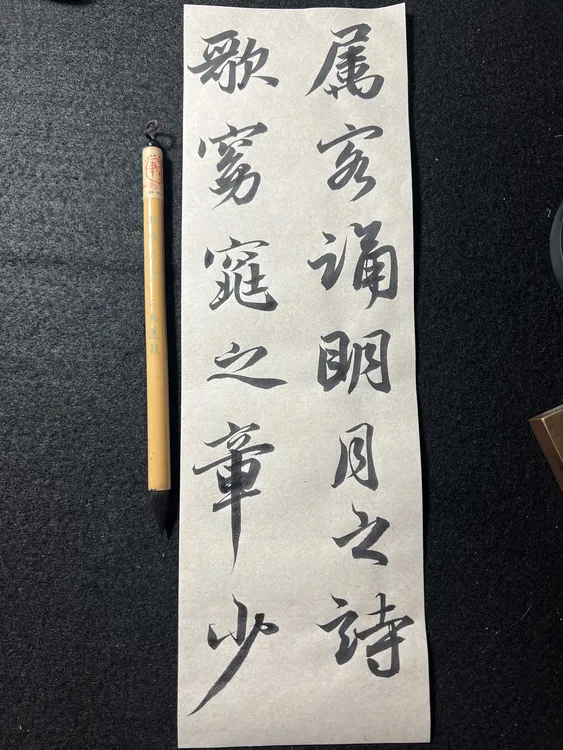 属客诵明月之詩
歌窈窕之章少